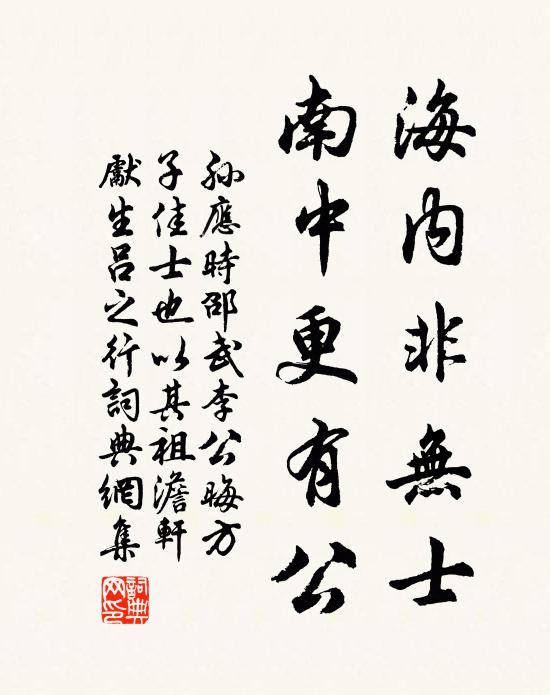 海内非無士
南中更有公
孫應時邵武李公晦方
子佳士也以其祖澹軒
獻生呂之行詞典網集
詞典網印